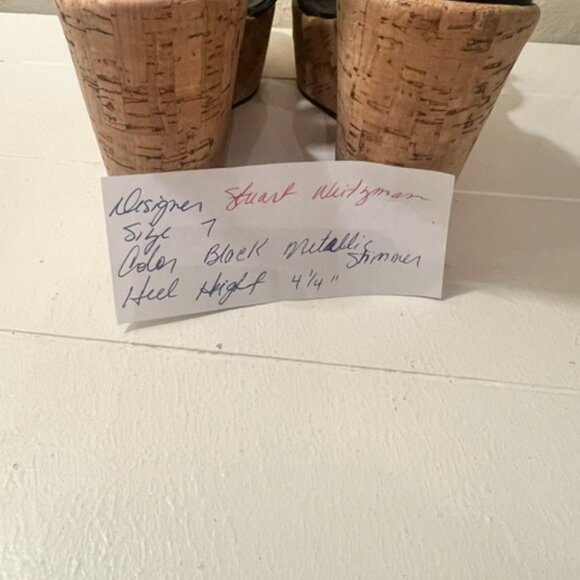 Designer Stuart Weitzman
Size 7
Color Black Metallic Shimmer
Heel Height 4 1/4"